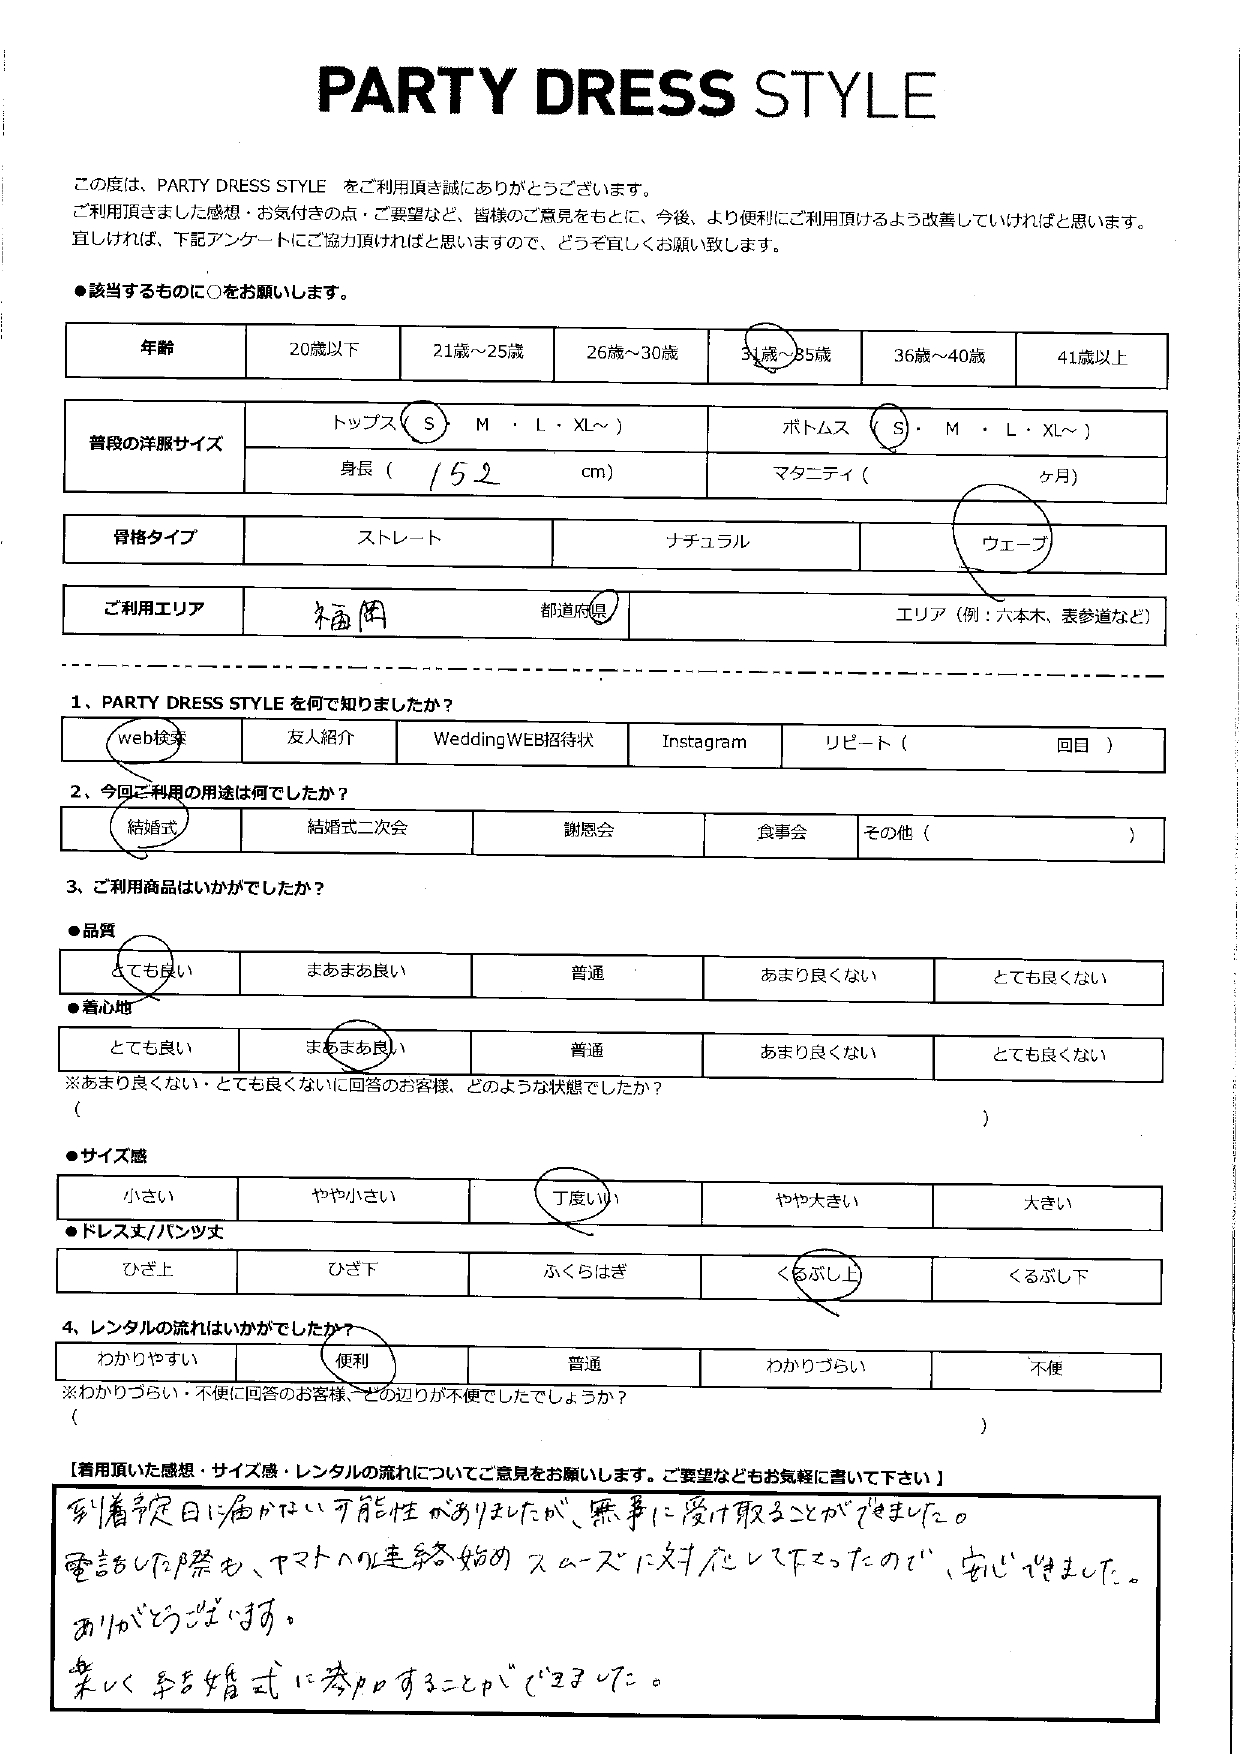 PARTY DRESS STYLE
この度は、PARTY DRESS STYLE をご利用頂き誠にありがとうございます。
ご利用頂きました感想・お気付きの点・ご要望など、皆様のご意見をもとに、今後、より便利にご利用頂けるよう改善していければと思います。
宜しければ、下記アンケートにご協力頂ければと思いますので、どうぞ宜しくお願い致します。
●該当するものに○をお願いします。
年齢 20歳以下 21歳～25歳 26歳～30歳 31歳～35歳 36歳～40歳 41歳以上
普段の洋服サイズ トップス( S ・ M ・ L ・ XL～ ) ボトムス ( S ・ M ・ L ・ XL～ )
身長 ( 152 cm) マタニティ ( ヶ月)
骨格タイプ ストレート ナチュラル ウェーブ
ご利用エリア 福岡 都道府県 エリア（例：六本木、表参道など）
1、PARTY DRESS STYLE を何で知りましたか？
web検索 友人紹介 WeddingWEB招待状 Instagram リピート ( 回目 )
2、今回ご利用の用途は何でしたか？
結婚式 結婚式二次会 謝恩会 食事会 その他 ( )
3、ご利用商品はいかがでしたか？
●品質
とても良い まあまあ良い 普通 あまり良くない とても良くない
●着心地
とても良い まあまあ良い 普通 あまり良くない とても良くない
※あまり良くない・とても良くないに回答のお客様、どのような状態でしたか？
( )
●サイズ感
小さい やや小さい 丁度いい やや大きい 大きい
●ドレス丈/パンツ丈
ひざ上 ひざ下 ふくらはぎ くるぶし上 くるぶし下
4、レンタルの流れはいかがでしたか？
わかりやすい 便利 普通 わかりづらい 不便
※わかりづらい・不便に回答のお客様、どの辺りが不便でしたでしょうか？
( )
【着用頂いた感想・サイズ感・レンタルの流れについてご意見をお願いします。ご要望などもお気軽に書いて下さい】
到着予定日に届かない可能性がありましたが、無事に受け取ることができました。
電話した際も、ヤマトへの連絡始めスムーズに対応して下さったので、安心できました。
ありがとうございます。
楽しく結婚式に参加することができました。